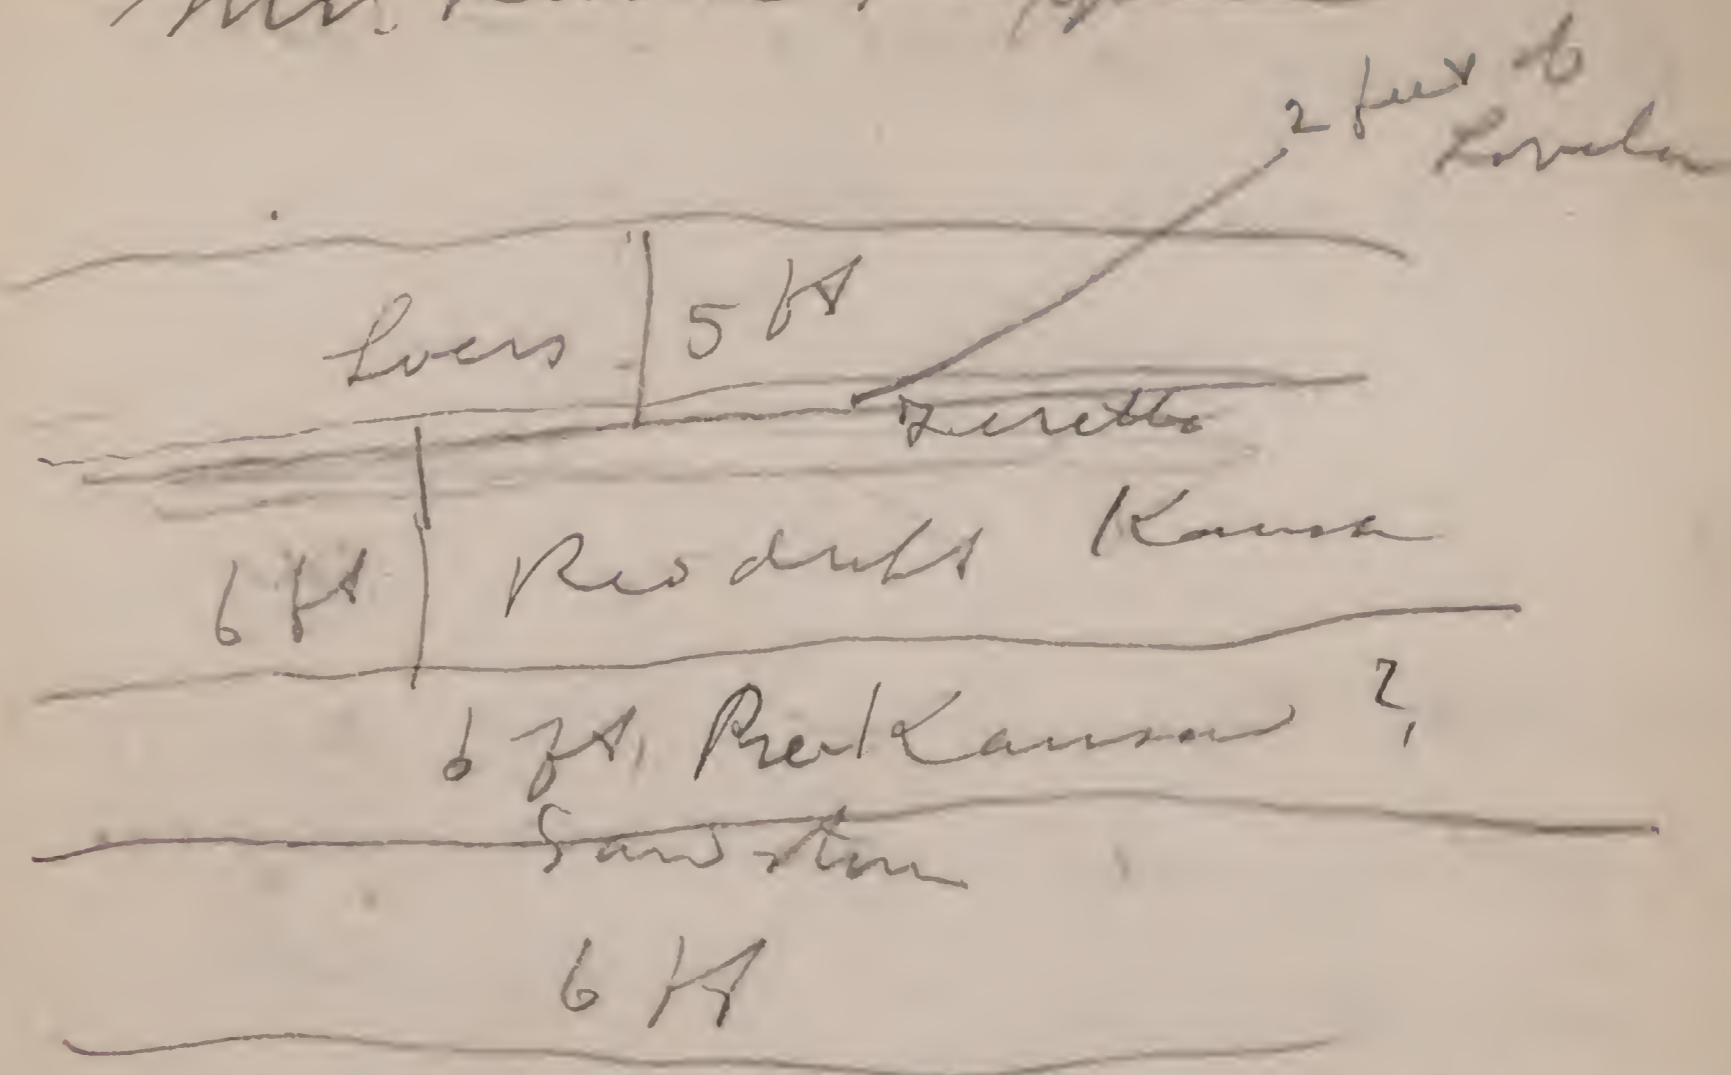 Mr.
2 feet to
Loess 5 ft
Feretto
6 ft Red drift Kansan
6 ft. PreKansan ?
Sandstone
6 ft